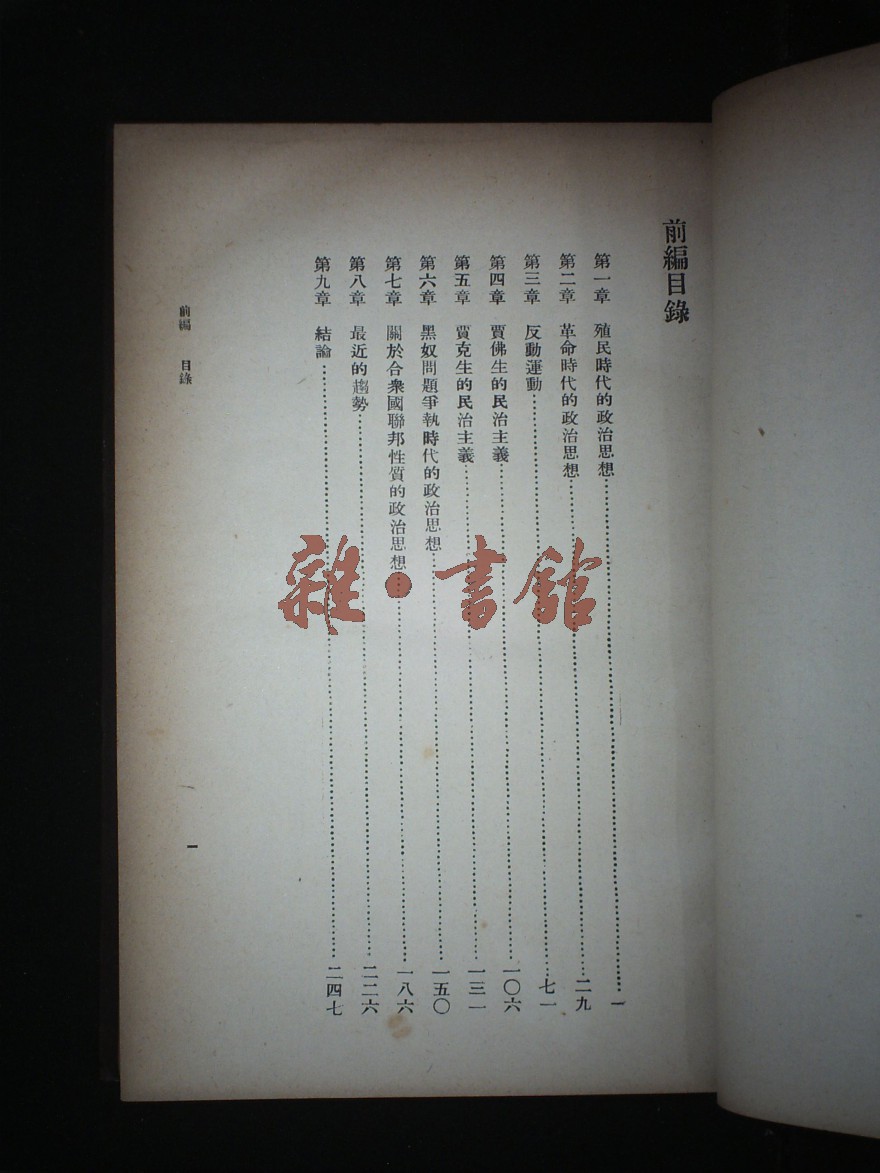 前編目錄
第一章 殖民時代的政治思想……一
第二章 革命時代的政治思想……二九
第三章 反動運動……七一
第四章 賈佛生的民治主義……一〇六
第五章 賈克生的民治主義……一三一
第六章 黑奴問題爭執時代的政治思想……一五〇
第七章 關於合衆國聯邦性質的政治思想……一八六
第八章 最近的趨勢……二二六
第九章 結論……二四七
前編 目錄 一
雜·書館